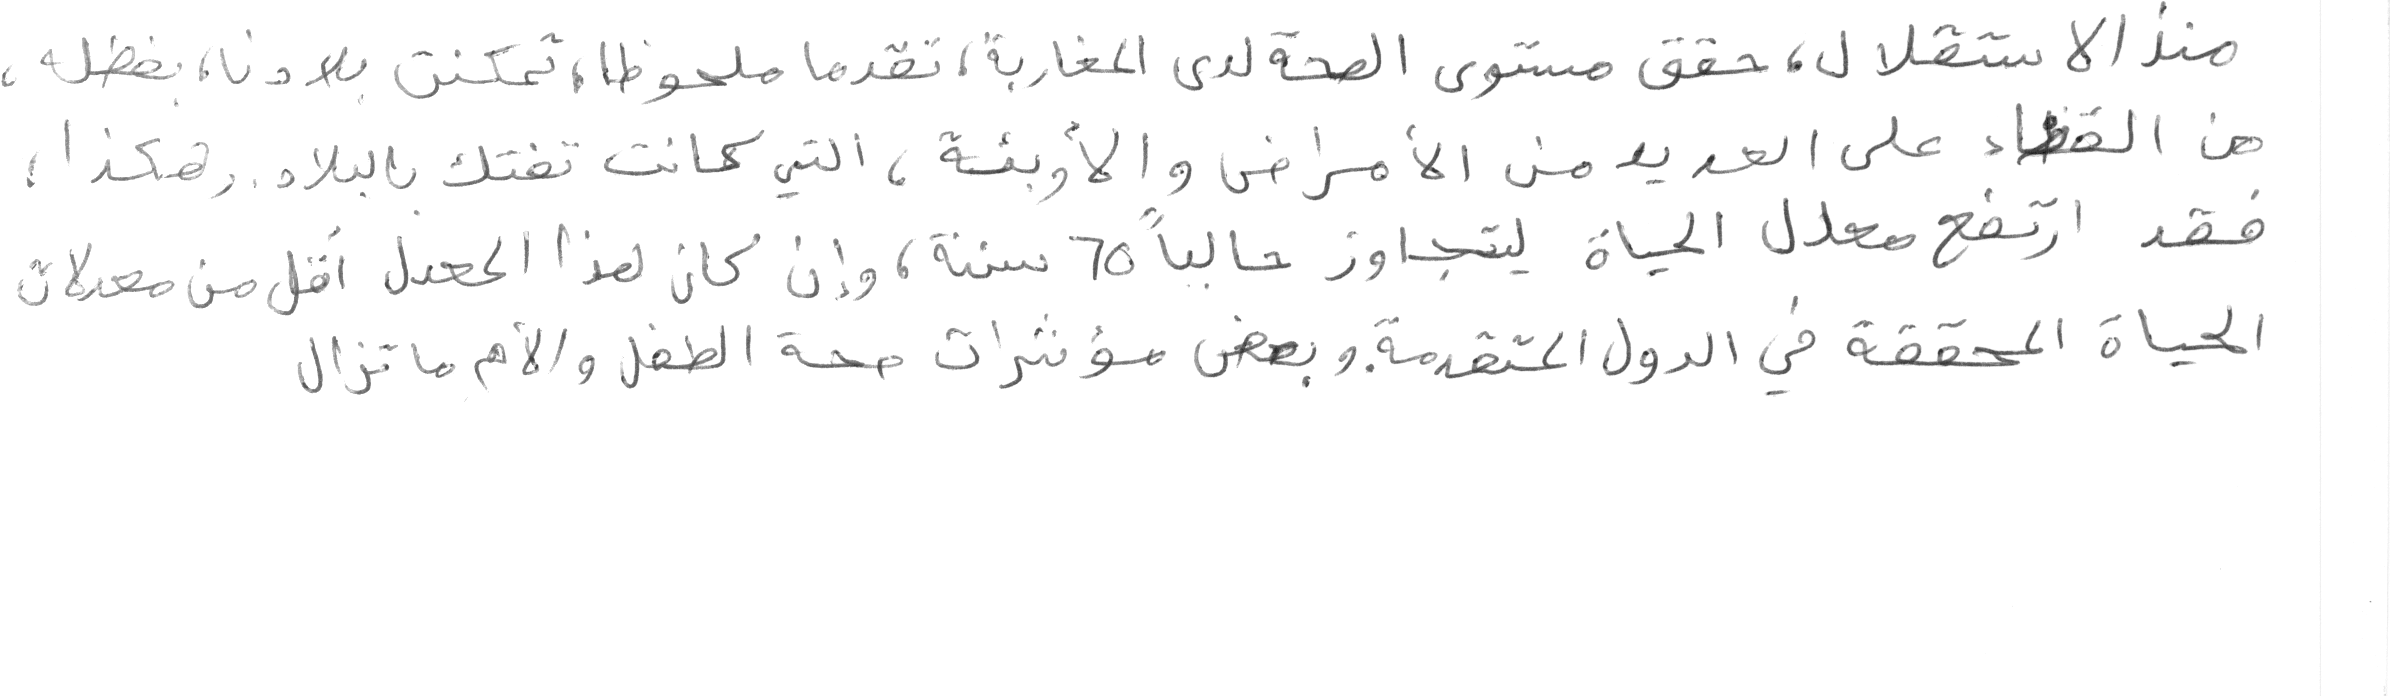 منذ الاستقلال، حقق مستوى الصحة لدى المغاربة، تقدما ملحوظا، تمكنت بلادنا، بفظله،
من القظاء على العديد من الأمراض والأوبئة، التي كانت تفتك بالبلاد. وهكذا،
فقد ارتفع معدل الحياة ليتجاوز حالياً 70 سنة، وإن كان هذا المعدل أقل من معدلات
الحياة المحققة في الدول المتقدمة. وبعض مؤشرات صحة الطفل والأم ما تزال